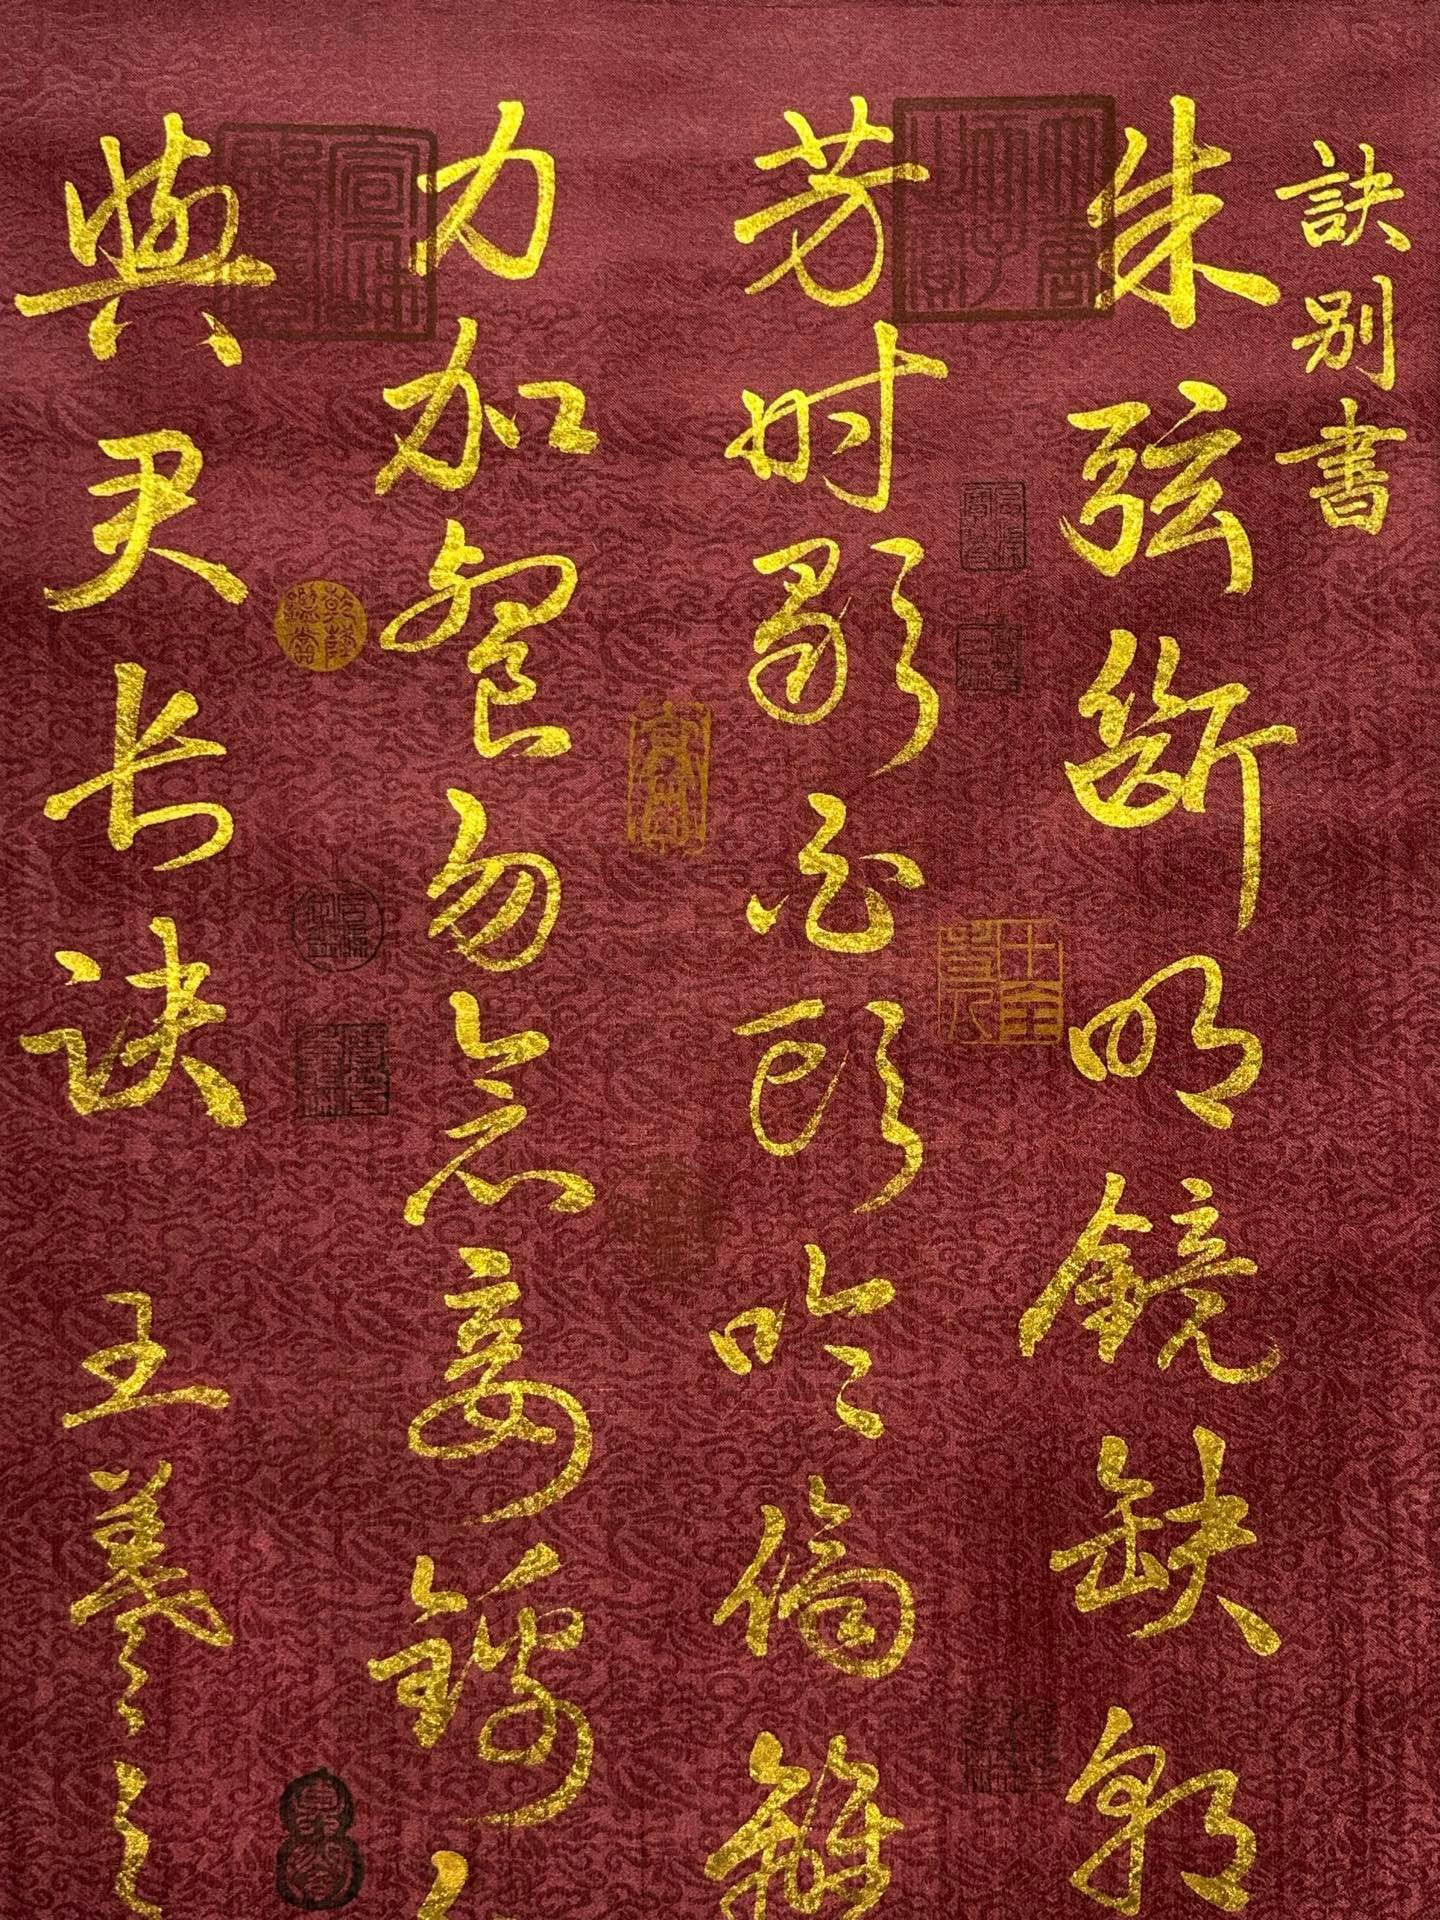 訣别書
朱弦斷明鏡缺朝
芳時歇白頭吟傷離
力加餐勿念妾錦
與君长訣 王羲之
乾隆鑑賞